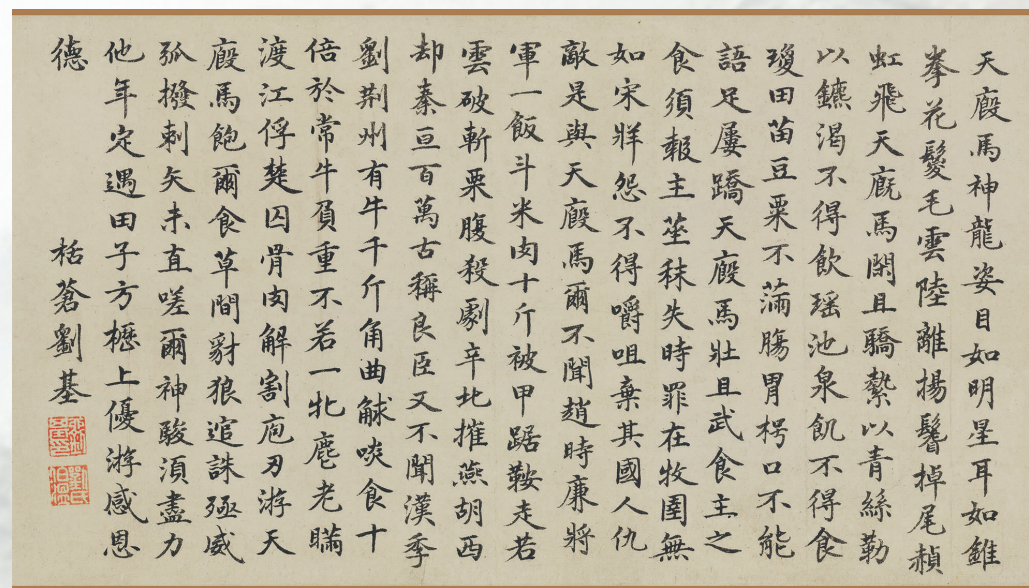 天廄馬神龍姿目如明星耳如錐
拳花鬉毛雲陸離揚鬐掉尾赬
虹飛天廐馬閑且驕縶以青絲勒
以鑣渴不得飲瑤池泉飢不得食
瓊田苗豆粟不滿腸胃枵口不能
語足屢蹻天廄馬壯且武食主之
食須報主莝秣失時罪在牧圉無
如宋牂怨不得嚼咀棄其國人仇
敵是與天廄馬爾不聞趙時廉將
軍一飯斗米肉十斤被甲踞鞍走若
雲破斬栗腹殺劇辛北摧燕胡西
却秦亘百萬古稱良臣又不聞漢季
劉荆州有牛千斤角曲觩啖食十
倍於常牛負重不若一牝麀老瞞
渡江俘楚囚骨肉解割庖刃游天
廄馬飽爾食草間豺狼逭誅殛威
弧撥剌矢未直嗟爾神駿湏盡力
他年定遇田子方櫪上優游感恩
德
栝蒼劉基